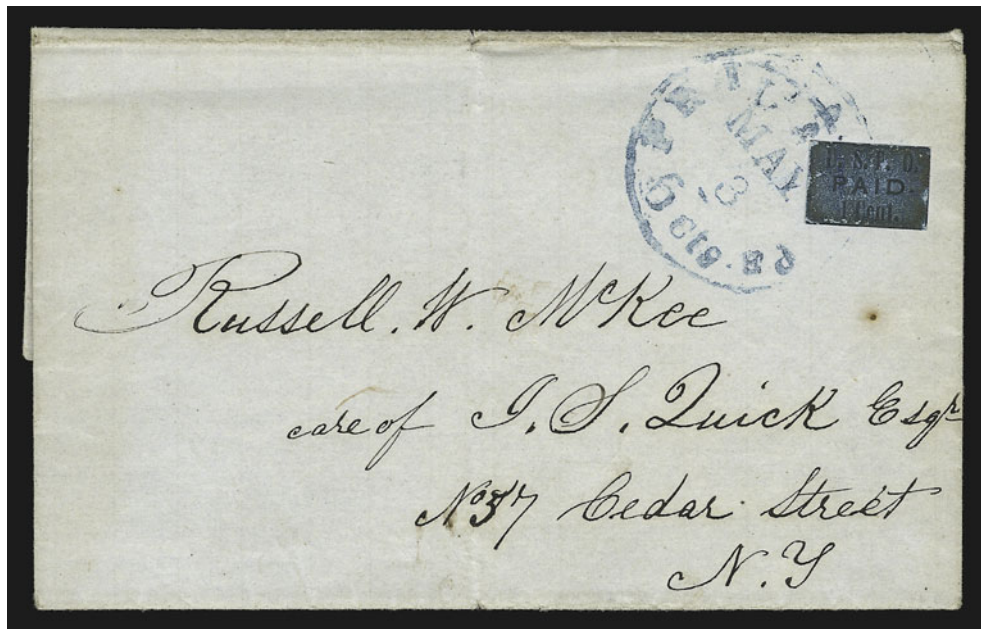 MAY
8
6 cts
U.S.P.O.
PAID.
1 Cent.
Russell. W. McKee
care of J. S. Quick Esqr
No 37 Cedar Street
N.Y